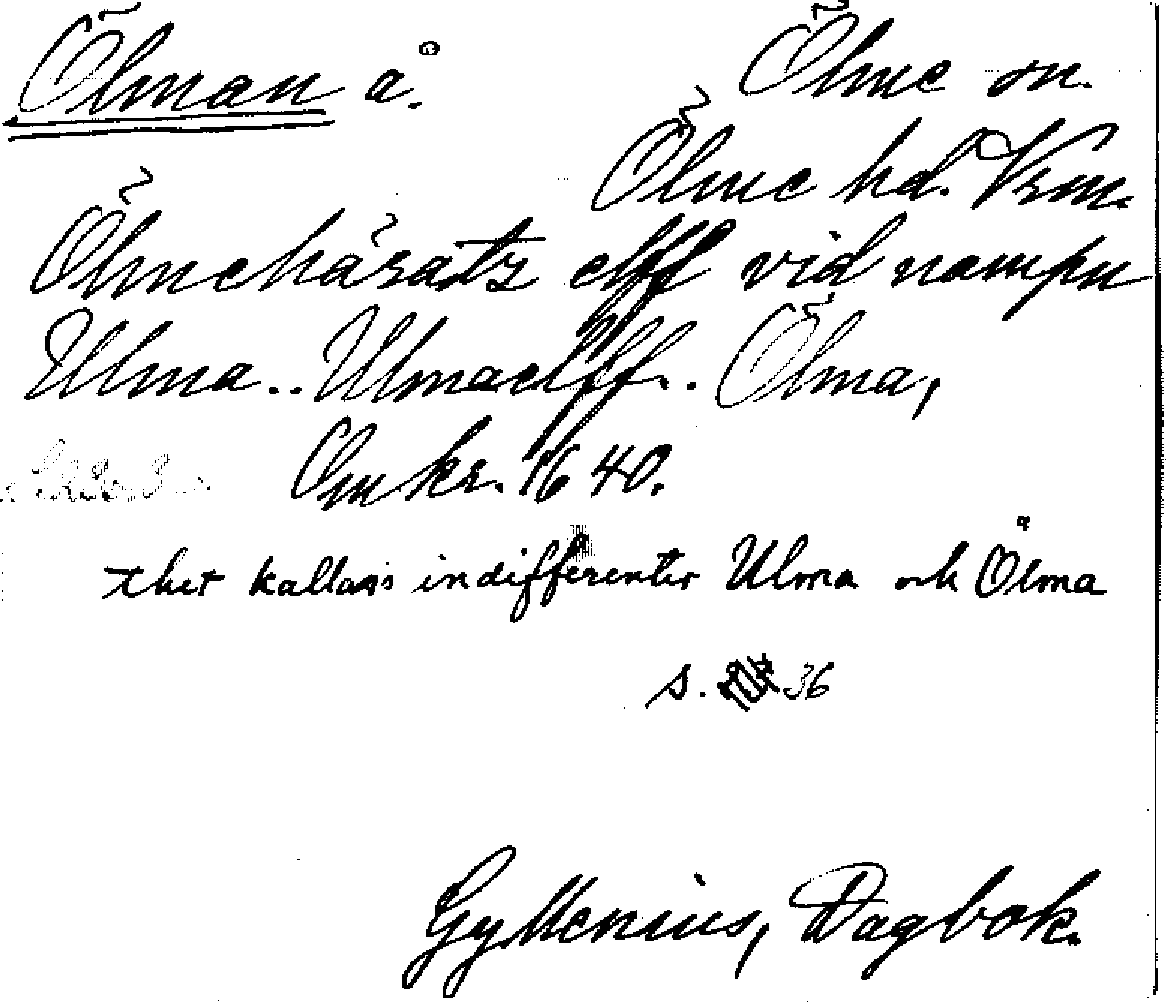 Ölman å. Ölme sn.
Ölme hd. Vrm.
Ölmehäratz elff vid nampn
Ulma.. Ulmaelff. Ölma,
Omkr. 1640.
thet kallas indifferenter Ulma och Ölma
s. 36
Gyllenius, Dagbok.